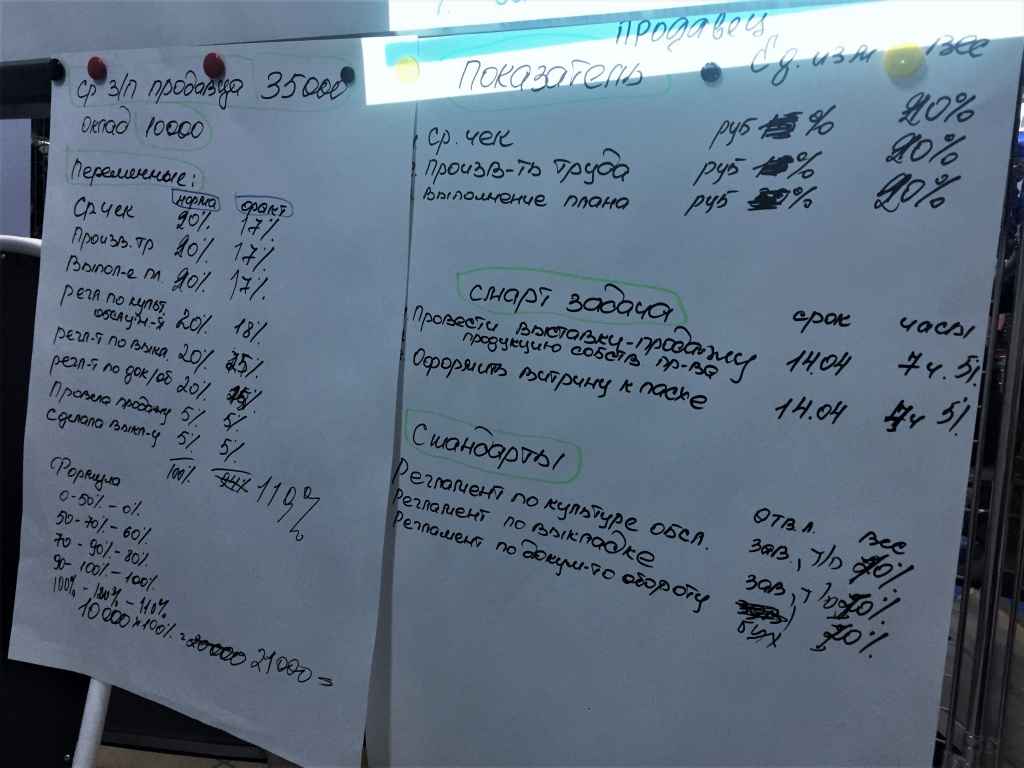 Ср з/п продавца 35000
оклад 10000
Переменные:
норма факт
Ср.чек 20% 17%
Произв.тр 20% 17%
Выпол-е пл. 20% 17%
регл по культ.
обслуж-я 20% 18%
регл-т по выкл. 20% 25%
регл-т по док/об 20% 15%
Провела продажу 5% 5%
Сделала выкл-у 5% 5%
100% 119%
Формула
0-50% - 0%
50-70% - 60%
70-90% - 80%
90-100% - 100%
100% - 120% - 110%
10000 × 100% = 21000 =
продавец
Показатель Ед. изм вес
Ср. чек руб % 20%
Произв-ть труда руб % 20%
Выполнение плана руб % 20%
Смарт задача срок часы
Провести выставку-продажу
продукцию собств пр-ва 14.04 7 ч. 5%
Оформить витрину к пасхе 14.04 ч 5%
Стандарты
отв.л. вес
Регламент по культуре обсл. зав., т/п 10%
Регламент по выкладке зав., 10%
Регламент по докум-то обороту бух 10%